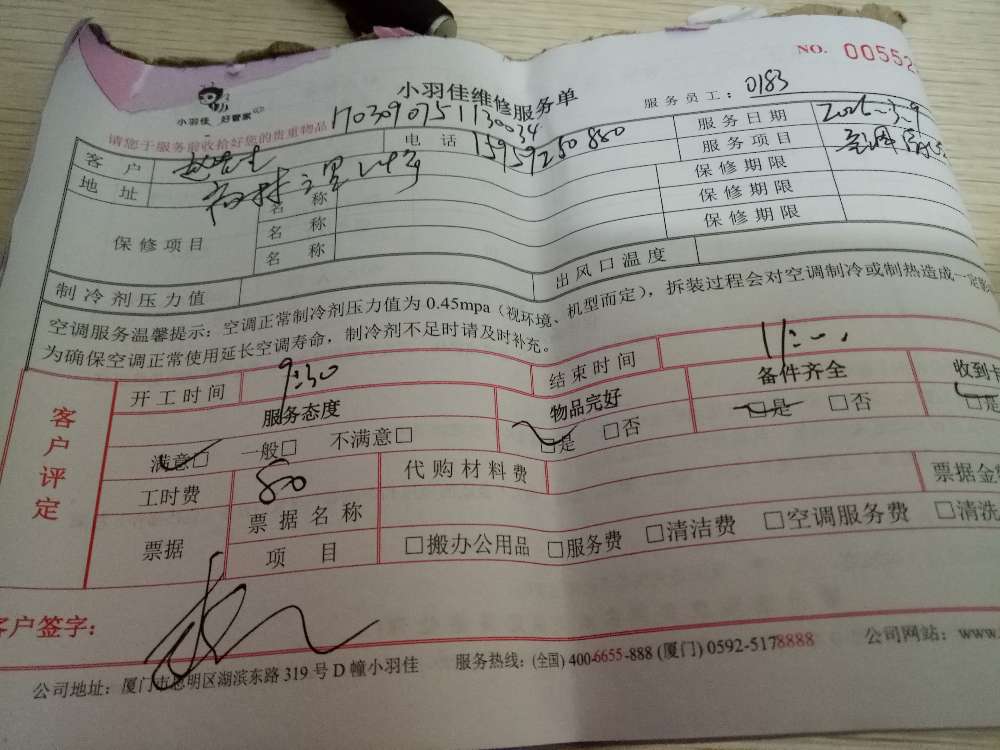 NO. 00552
小羽佳 好管家
小羽佳维修服务单
服务员工：0183
请您于服务前收拾好您的贵重物品
17030907511130034
客户
电话 15959250880
服务日期
地址
服务项目
保修项目
名称
保修期限
名称
保修期限
名称
保修期限
制冷剂压力值
出风口温度
空调服务温馨提示：空调正常制冷剂压力值为 0.45mpa（视环境、机型而定），拆装过程会对空调制冷或制热造成一定
为确保空调正常使用延长空调寿命，制冷剂不足时请及时补充。
客户评定
开工时间 9:30
结束时间 11:00
服务态度
物品完好
备件齐全
收到
满意□ 一般□ 不满意□
□是 □否
□是 □否
□是
工时费 80
代购材料费
票据金
票据
票据名称
项目
□搬办公用品 □服务费 □清洁费 □空调服务费 □清洗
客户签字：
公司地址：厦门市思明区湖滨东路 319 号 D 幢小羽佳
服务热线：(全国) 400-6655-888 (厦门) 0592-5178888
公司网站：www.